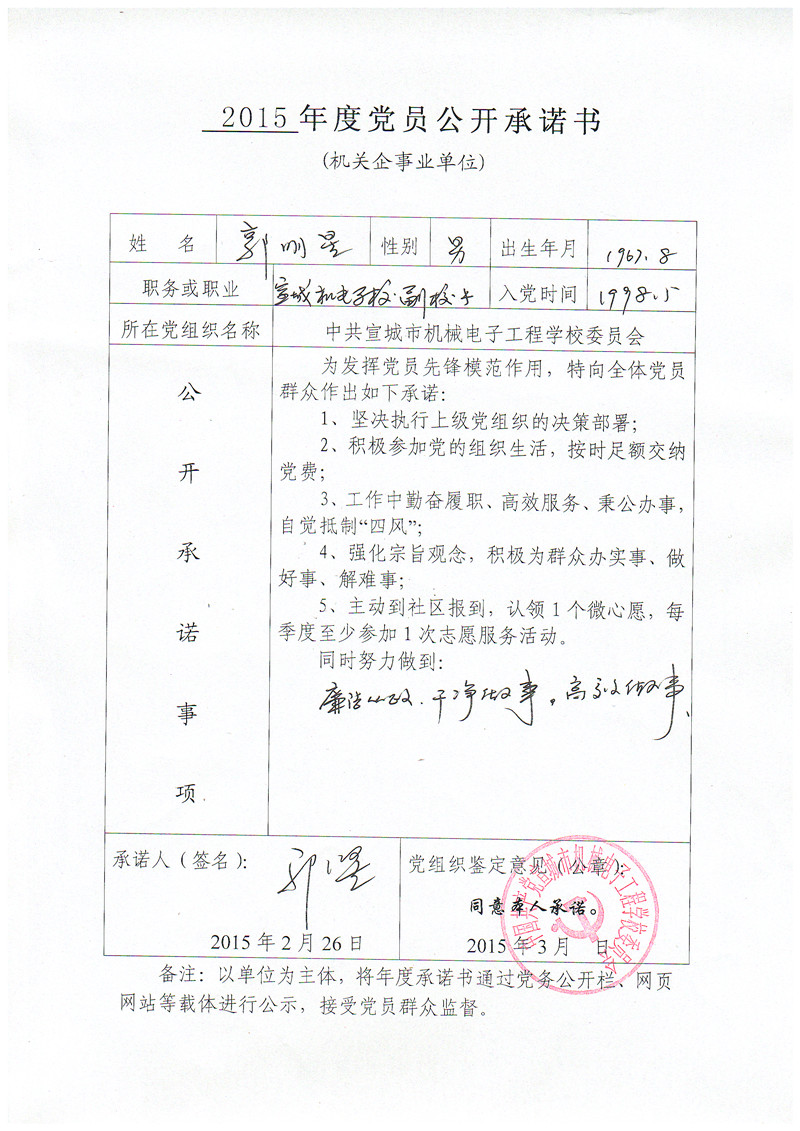 2015年度党员公开承诺书
(机关企事业单位)
姓 名 郭明星 性别 男 出生年月 1967.8
职务或职业 宣城机电子校.副校长 入党时间 1998.5
所在党组织名称 中共宣城市机械电子工程学校委员会
公开承诺事项
为发挥党员先锋模范作用，特向全体党员
群众作出如下承诺:
1、坚决执行上级党组织的决策部署;
2、积极参加党的组织生活，按时足额交纳
党费;
3、工作中勤奋履职、高效服务、秉公办事，
自觉抵制“四风”;
4、强化宗旨观念，积极为群众办实事、做
好事、解难事;
5、主动到社区报到，认领1个微心愿，每
季度至少参加1次志愿服务活动。
同时努力做到:
廉洁从政.干净做事。高效做事、
承诺人（签名）:
2015年2月26日
党组织鉴定意见（公章）:
同意本人承诺。
2015年3月 日
中国共产党宣城市机械电子工程学校委员会
备注：以单位为主体，将年度承诺书通过党务公开栏、网页
网站等载体进行公示，接受党员群众监督。